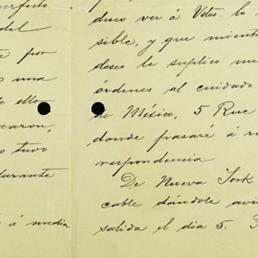 perfecto
del
te por
o una
te ello
caron,
o tuvo
durante
ó á media
duco ver á Vdes. lo
sible, y que mient
deseo le suplico me
órdenes al cuidado
de México, 5 Rue
donde pasaré á r
respondencia
De Nueva York
cable dándole avi
salida el día 5.